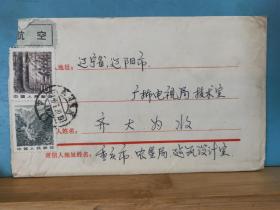 航空
人地址: 辽宁省辽阳市
广播电视局 技术室
人姓名: 齐大为收
寄信人地址姓名: 重庆市 农垦局 建筑设计室
中国人民邮政
中国人民邮政